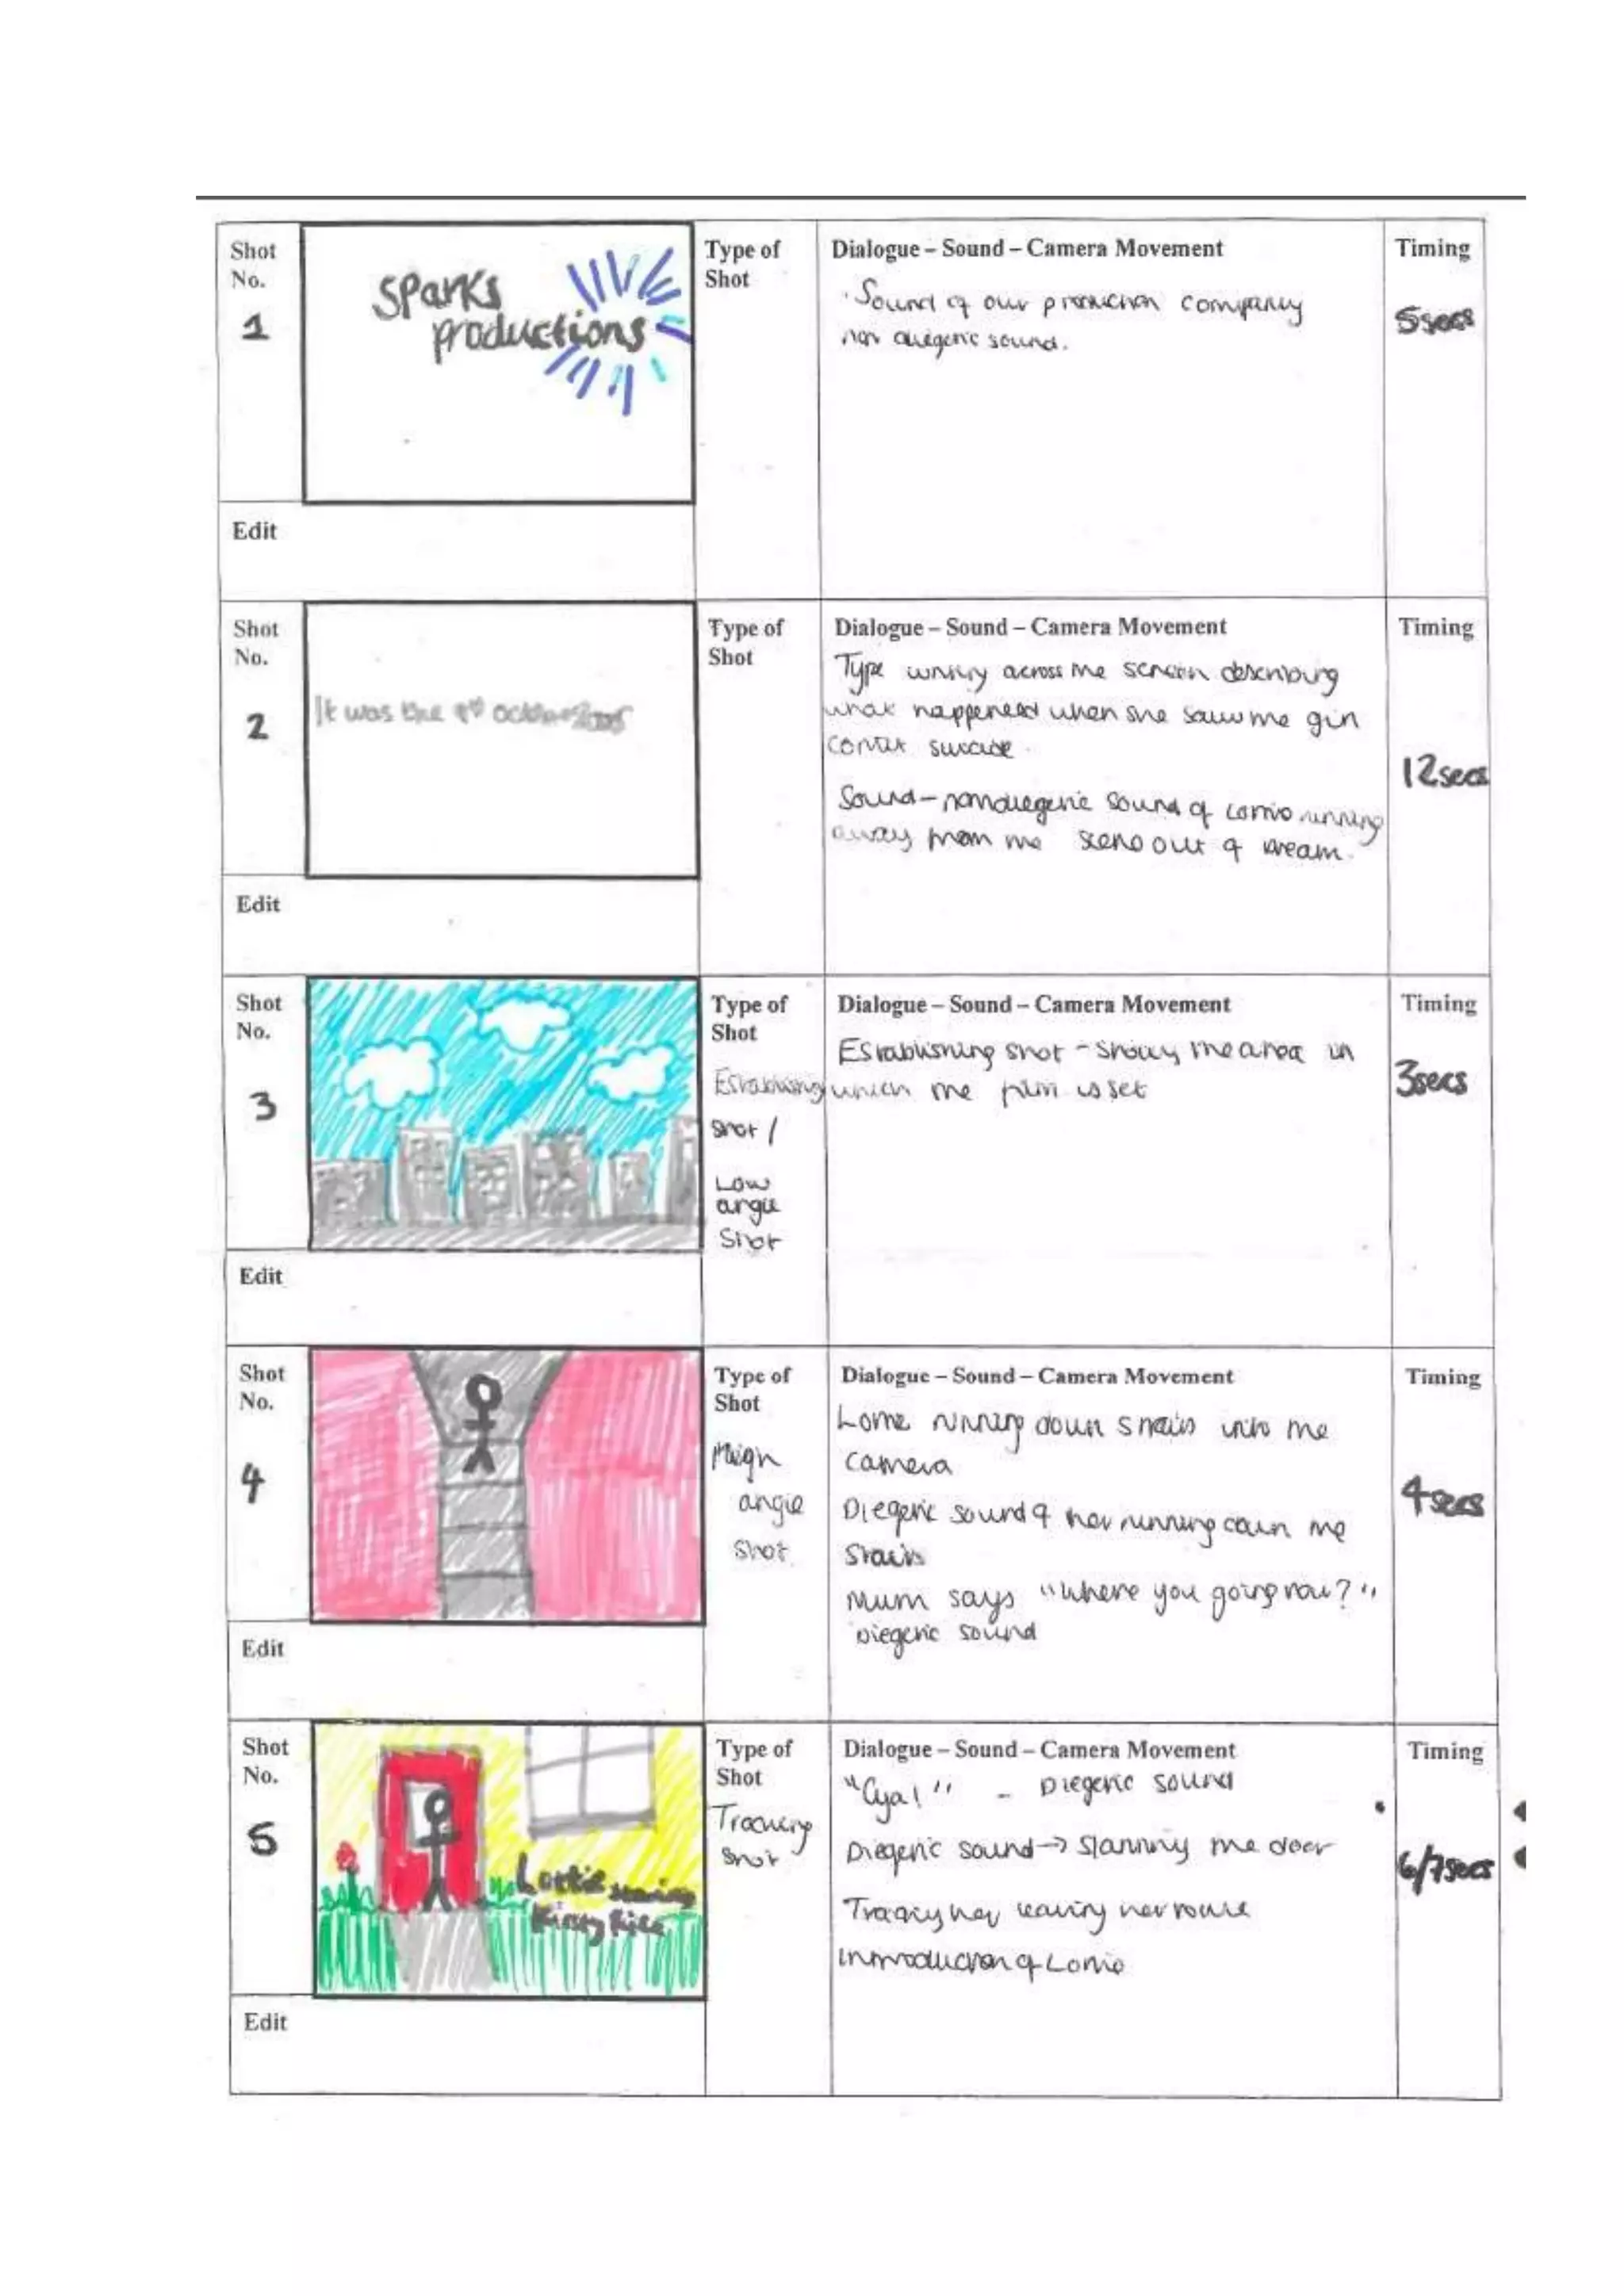 Shot
No.
1
Sparks
productions
Type of
Shot
Dialogue – Sound – Camera Movement
· Sound of our production company
non diegenic sound.
Timing
5secs
Edit
Shot
No.
2
It was the
Type of
Shot
Dialogue – Sound – Camera Movement
Type across the screen describing
what happened when she saw the girl
suicide.
Sound – nondiegenic sound of Lottie running
away from the out of dream.
Timing
12secs
Edit
Shot
No.
3
Type of
Shot
Establishing
shot /
Low
angle
Shot
Dialogue – Sound – Camera Movement
Establishing shot – the area in
which the film is set
Timing
3secs
Edit
Shot
No.
4
Type of
Shot
High
angle
Shot
Dialogue – Sound – Camera Movement
Lottie running down stairs into the
camera
Diegenic sound of her running down the
stairs
Mum says "Where you going now?"
Diegenic sound
Timing
4secs
Edit
Shot
No.
5
Lottie
Type of
Shot
Tracking
Shot
Dialogue – Sound – Camera Movement
"Cya!" – Diegenic sound
Diegenic sound → the door
her leaving her house
introduction of Lottie
Timing
6/7secs
Edit